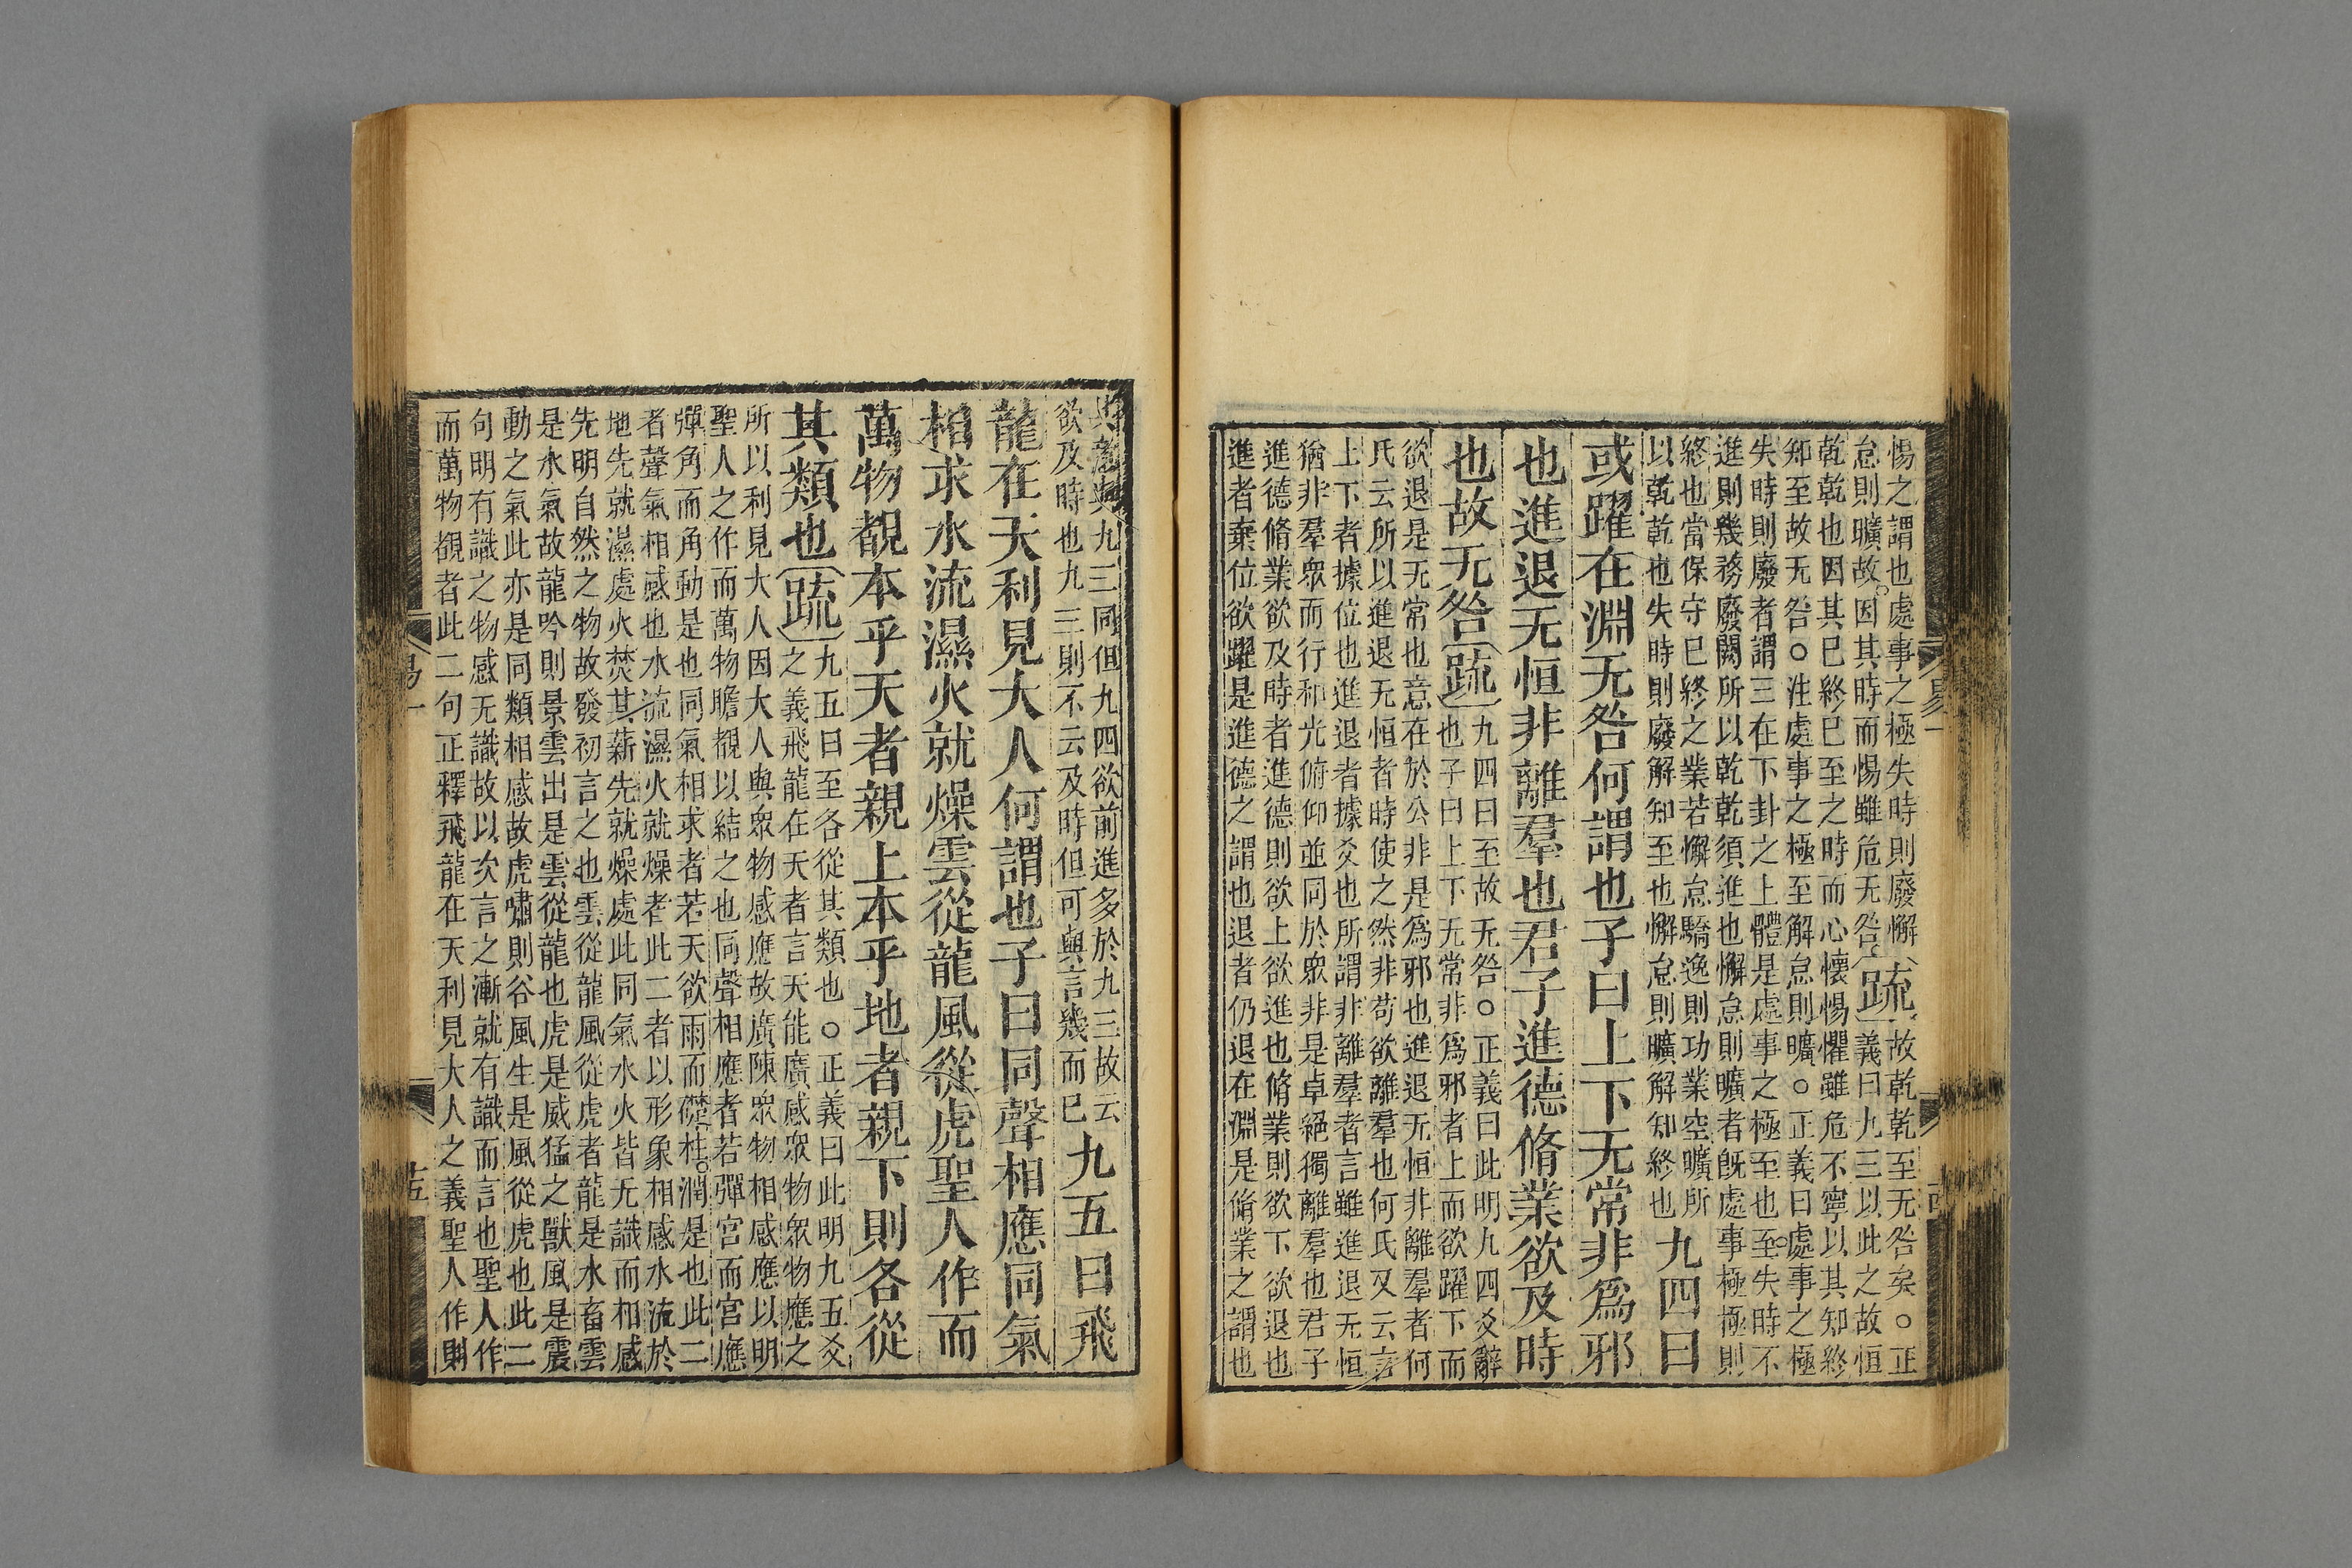 惕之謂也處事之極失時則廢懈
怠則曠故因其時而惕雖危无咎
疏
故乾乾至无咎矣○正
義曰九三以此之故恒
乾乾也因其巳終巳至之時而心懷惕懼雖危不寧以其知終
知至故无咎○注處事之極至解怠則曠○正義曰處事之極
失時則廢者謂三在下卦之上體是處事之極至也至失時不
進則幾務廢闕所以乾乾須進也懈怠則曠者旣處事極極則
終也當保守巳終之業若懈怠驕逸則功業空曠所
以乾乾也失時則廢解知至也懈怠則曠解知終也
九四曰
或躍在淵无咎何謂也子曰上下无常非爲邪
也進退无恒非離羣也君子進德脩業欲及時
也故无咎
疏
九四曰至故无咎○正義曰此明九四爻辭
也子曰上下无常非爲邪者上而欲躍下而
欲退是无常也意在於公非是爲邪也進退无恒非離羣者何
氏云所以進退无恒者時使之然非苟欲離羣也何氏又云言
上下者據位也進退者據爻也所謂非離羣者言雖進退无恒
猶非羣眾而行和光俯仰並同於眾非是卓絕獨離羣也君子
進德脩業欲及時者進德則欲上欲進也脩業則欲下欲退也
進者棄位欲躍是進德之謂也退者仍退在淵是脩業之謂也
易一
其意與九三同但九四欲前進多於九三故云
欲及時也九三則不云及時但可與言幾而巳
九五曰飛
龍在天利見大人何謂也子曰同聲相應同氣
相求水流濕火就燥雲從龍風從虎聖人作而
萬物覩本乎天者親上本乎地者親下則各從
其類也
疏
九五曰至各從其類也○正義曰此明九五爻
之義飛龍在天者言天能廣感眾物眾物應之
所以利見大人因大人與眾物感應故廣陳眾物相感應以明
聖人之作而萬物瞻覩以結之也同聲相應者若彈宮而宮應
彈角而角動是也同氣相求者若天欲雨而礎柱潤是也此二
者聲氣相感也水流濕火就燥者此二者以形象相感水流於
地先就濕處火焚其薪先就燥處此同氣水火皆无識而相感
先明自然之物故發初言之也雲從龍風從虎者龍是水畜雲
是水氣故龍吟則景雲出是雲從龍也虎是威猛之獸風是震
動之氣此亦是同類相感故虎嘯則谷風生是風從虎也此二
句明有識之物感无識故以次言之漸就有識而言也聖人作
而萬物覩者此二句正釋飛龍在天利見大人之義聖人作則
易一
十五